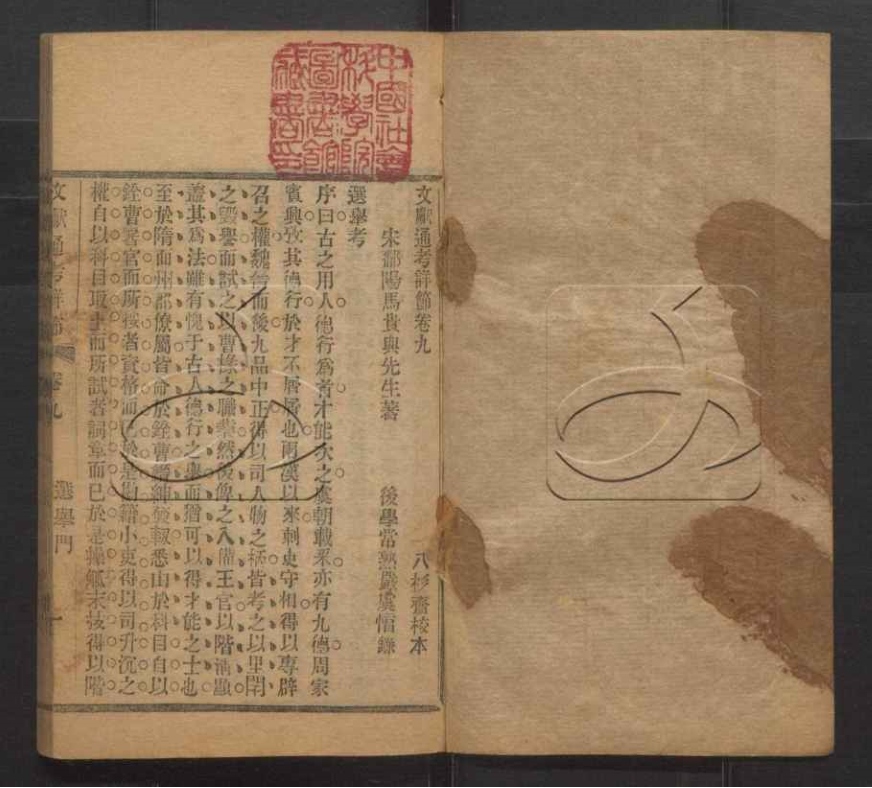 中國社會
科學院
圖書館
藏書印
文獻通考詳節卷九
八杉齋校本
宋鄱陽馬貴與先生著
後學常熟嚴虞惇錄
選舉考
序曰古之用人德行爲首才能次之虞朝載采亦有九德周家
賓興攷其德行於才不屑屑也兩漢以來刺史守相得以專辟
召之權魏晉而後九品中正得以司人物之柄皆考之以里閈
之毀譽而試之以曹掾之職業然後俾之入備王官以階淸顯
蓋其爲法雖有愧于古人德行之舉而猶可以得才能之士也
至於隋而州郡僚屬皆命於銓曹搢紳發軔悉由於科目自以
銓曹署官而所按者資格而已於是勘籍小吏得以司升沉之
權自以科目取士而所試者詞章而已於是操觚末技得以階
文獻通考詳節
卷九
選舉門
一